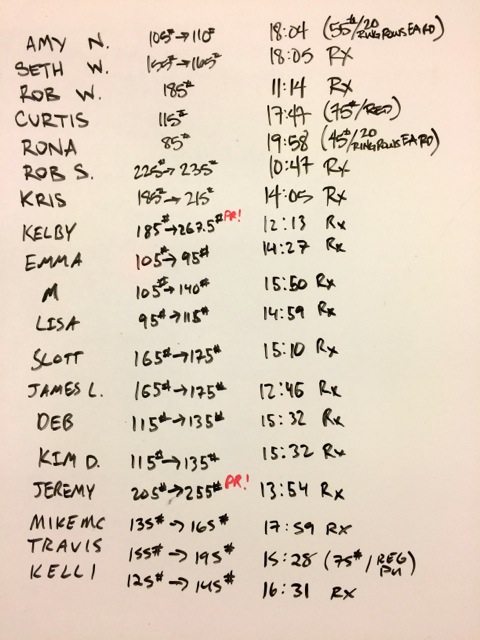 AMY N. 105#→110# 18:04 (55#/20 RING ROWS EA RD)
SETH W. 155#→165# 18:05 Rx
ROB W. 185# 11:14 Rx
CURTIS 115# 17:47 (75#/RED)
RONA 85# 19:58 (45#/20 RING ROWS EA RD)
ROB S. 225#→235# 10:47 Rx
KRIS 195#→215# 14:05 Rx
KELBY 185#→267.5# PR! 12:13 Rx
EMMA 105#→95# 14:27 Rx
M 105#→140# 15:50 Rx
LISA 95#→115# 14:59 Rx
SCOTT 165#→175# 15:10 Rx
JAMES L. 165#→175# 12:46 Rx
DEB 115#→135# 15:32 Rx
KIM D. 115#→135# 15:32 Rx
JEREMY 205#→255# PR! 13:54 Rx
MIKE MC 135#→165# 17:59 Rx
TRAVIS 155#→195# 15:28 (75#/REG PU)
KELLI 125#→145# 16:31 Rx